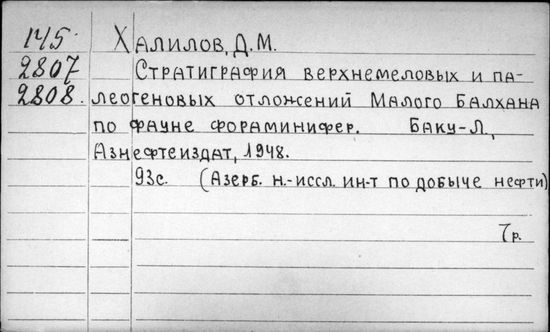 145. Халилов, Д.М.
2807 Стратиграфия верхнемеловых и па-
2808. леогеновых отложений Малого Балхана
по фауне фораминифер. Баку-Л.,
Азнефтеиздат, 1948.
93с. (Азерб. н.-иссл. ин-т по добыче нефти)
7р.